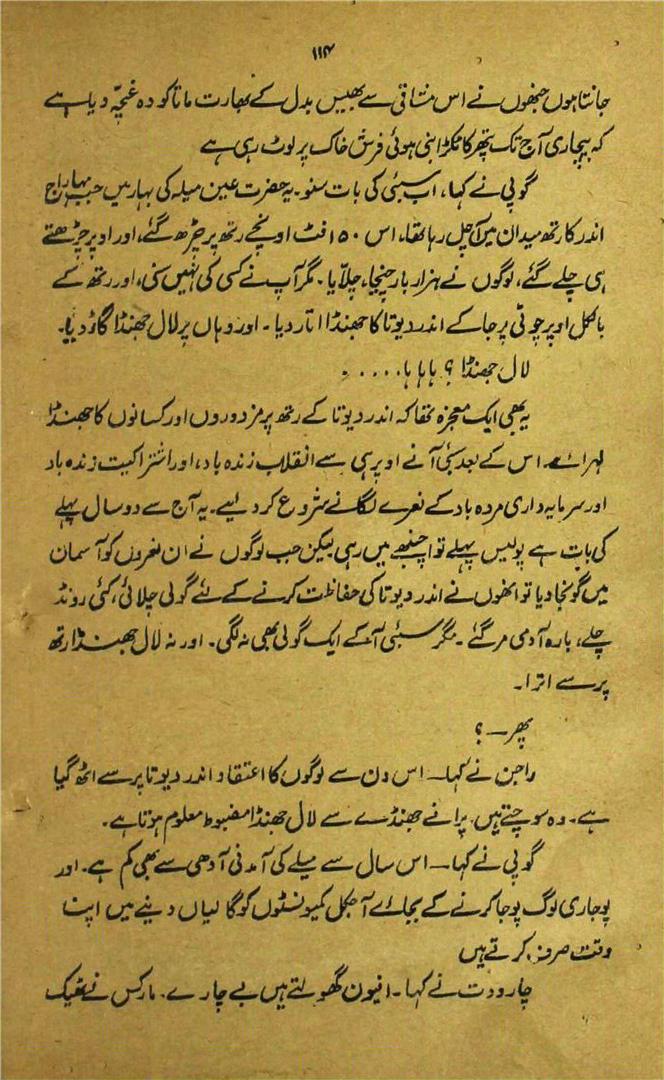 ۱۱۴
جانتا ہوں جنھوں نے اس مشاقی سے بھیس بدل کے بھارت ماتا کو وہ غچہ دیا ہے
کہ بیچاری آج تک پتھر کا ٹکڑا بنی ہوئی فرش خاک پر لوٹ رہی ہے
گوپی نے کہا، اب سبئی کی بات سنو۔ یہ حضرت عین میلہ کی بہار میں جب مہاراج
اندر کا رتھ میدان میں چل رہا تھا، اس ۱۵۰ فٹ اونچے رتھ پر چڑھ گئے، اور اوپر چڑھتے
ہی چلے گئے، لوگوں نے ہزار بار چیخا، چلّایا۔ مگر آپ نے کسی کی نہیں سنی، اور رتھ کے
بالکل اوپر چوٹی پر جا کے اندر دیوتا کا جھنڈا اتار دیا۔ اور وہاں پر لال جھنڈا گاڑ دیا۔
لال جھنڈا ؟ ہا ہا ہا.....
یہ بھی ایک معجزہ تھا کہ اندر دیوتا کے رتھ پر مزدوروں اور کسانوں کا جھنڈا
لہرائے۔ اس کے بعد سبئی آ نے اوپر ہی سے انقلاب زندہ باد، اور اشتراکیت زندہ باد
اور سرمایہ داری مردہ باد کے نعرے لگانے شروع کر دئیے۔ یہ آج سے دو سال پہلے
کی بات ہے پولیس پہلے تو اچنبھے میں رہی لیکن جب لوگوں نے ان نعروں کو آسمان
میں گونجا دیا تو انھوں نے اندر دیوتا کی حفاظت کرنے کے لئے گولی چلائی، کئی روند
چلے، بارہ آدمی مر گئے۔ مگر سبئی آ کے ایک گولی بھی نہ لگی۔ اور نہ لال جھنڈا رتھ
پر سے اترا۔
پھر — ؟
راجن نے کہا — اس دن سے لوگوں کا اعتقاد اندر دیوتا پر سے اٹھ گیا
ہے۔ وہ سوچتے ہیں پرانے جھنڈے سے لال جھنڈا مضبوط معلوم ہوتا ہے۔
گوپی نے کہا — اس سال سے میلے کی آمدنی آدھی سے بھی کم ہے۔ اور
پوجاری لوگ پوجا کرنے کے بجائے آجکل کمیونسٹوں کو گالیاں دینے میں اپنا
وقت صرف کرتے ہیں
چارودت نے کہا۔ افیون گھولتے ہیں بے چارے۔ مارکس نے ٹھیک